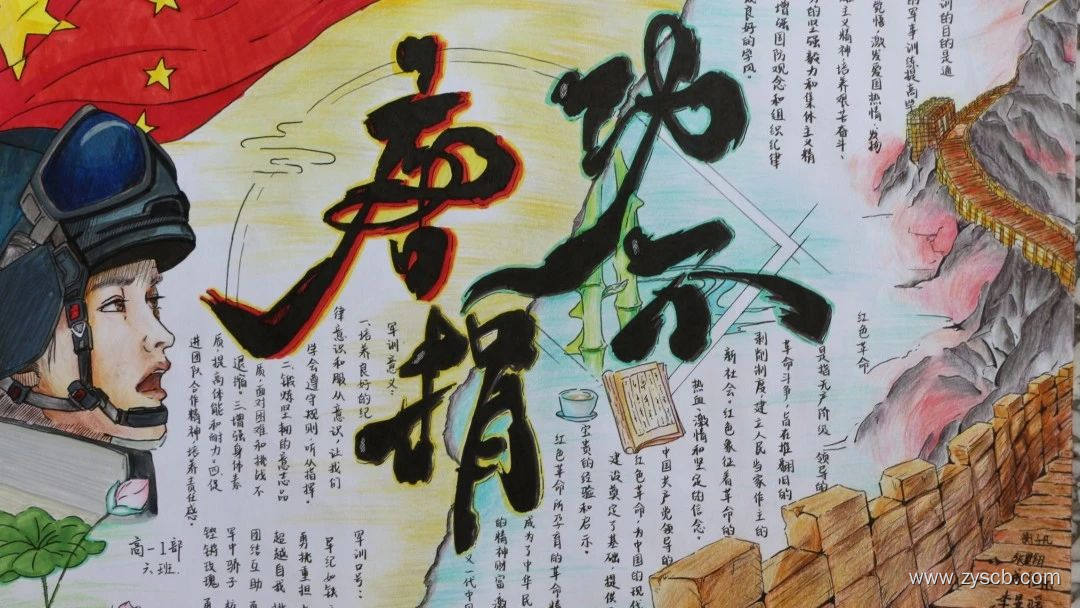 功不
唐捐
训的目的是通
的军事训练提高学
觉悟，激发爱国热情，发扬
主义精神，培养艰苦奋斗、
的坚强毅力和集体主义精
增强国防观念和组织纪律
良好的学风。
红色革命
是指无产阶级领导的
革命斗争，旨在推翻旧的
剥削制度，建立人民当家作主的
新社会。红色象征着革命的
热血、激情和坚定的信念。
中国共产党领导的
红色革命，为中国的现代
建设奠定了基础，提供
宝贵的经验和启示。
红色革命所孕育的革命精
成为了中华民
的精神财富，激
一代中国
军训意义：
一、培养良好的纪
律意识和服从意识，让我们
学会遵守规则，听从指挥。
二、锻炼坚韧的意志品
质，面对困难和挑战不
退缩。三、增强身体素
质，提高体能和耐力。四、促
进团队合作精神，培养责任感。
军训口号：
军纪如铁
勇挑重担
超越自我
团结互助
军中骄子
铿锵玫瑰
高一1部
六班
www.zyscb.com